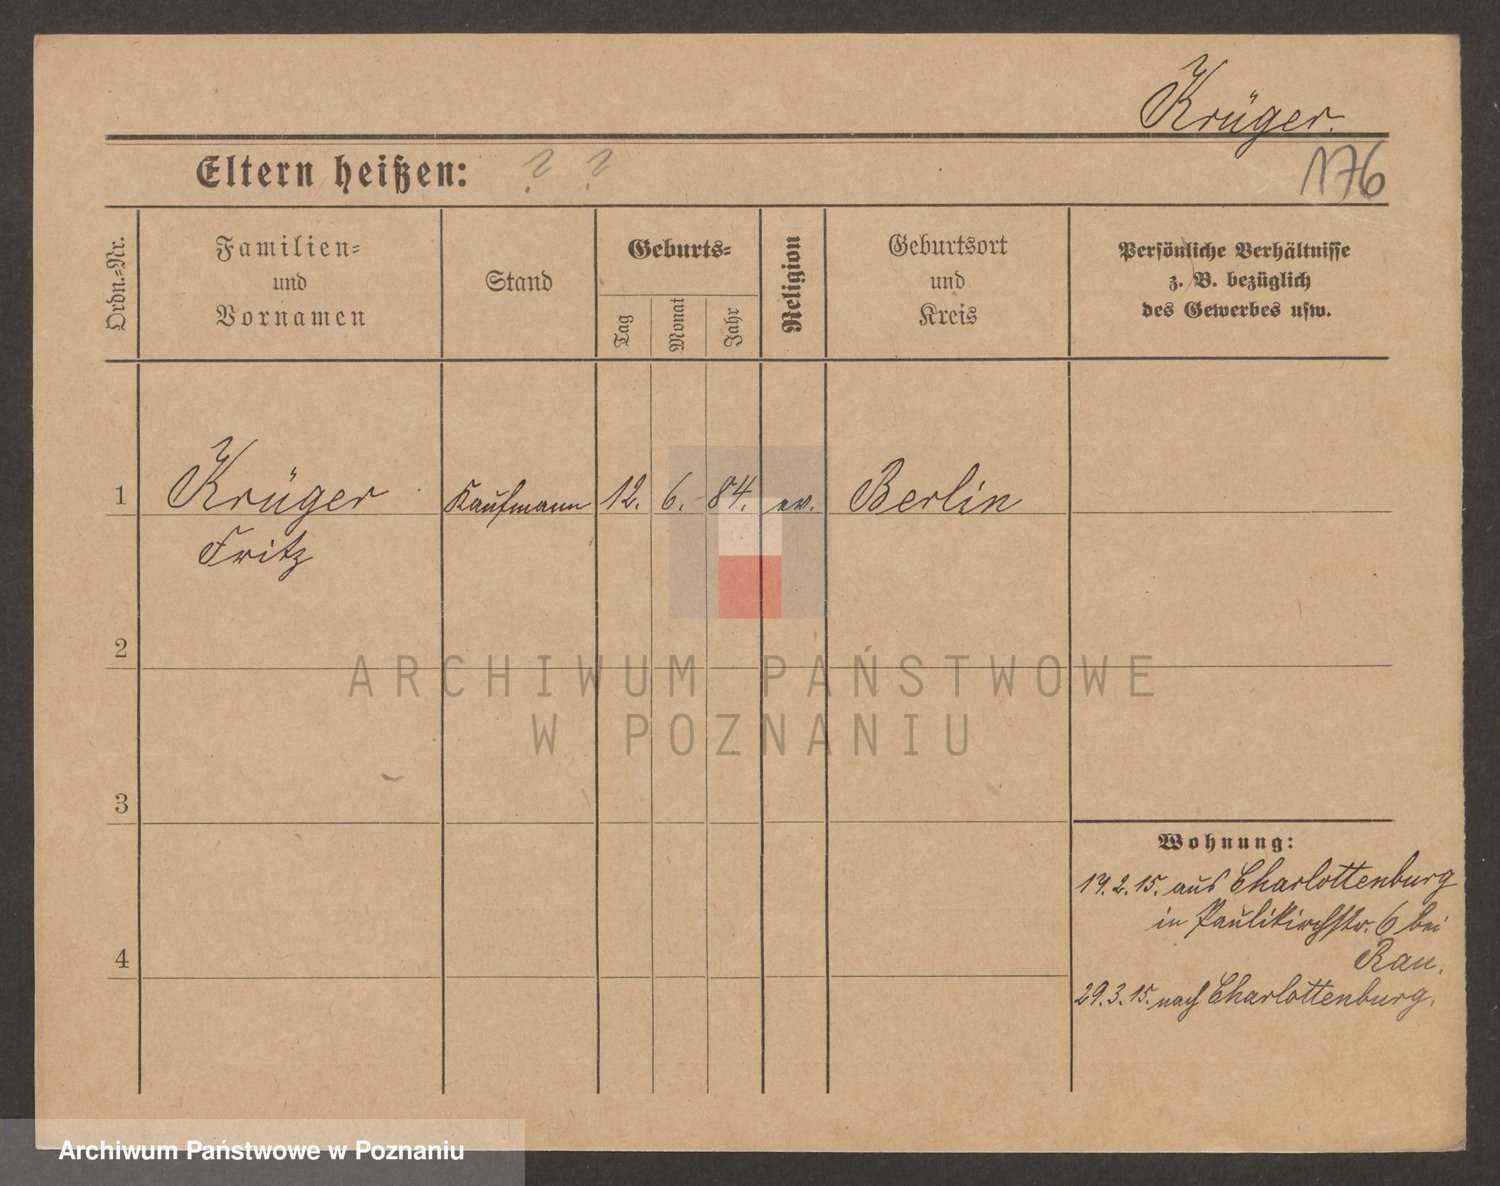 Krüger.
Eltern heißen: ? ?
176
Ordn.-Nr.
Familien-
und
Vornamen
Stand
Geburts-
Tag
Monat
Jahr
Religion
Geburtsort
und
Kreis
Persönliche Verhältnisse
z. B. bezüglich
des Gewerbes usw.
1 Krüger Kaufmann 12. 6. 84. ev. Berlin
Fritz
2
ARCHIWUM PAŃSTWOWE
W POZNANIU
3
Wohnung:
19.2.15. aus Charlottenburg
in Paulikirchstr. 6 bei
Rau.
4
29.3.15. nach Charlottenburg.
Archiwum Państwowe w Poznaniu